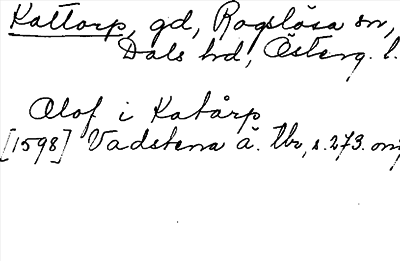 Kattorp, gd, Rogslösa sn,
Dals hd, Österg. l.
Olof i Katårp
[1598] Vadstena ä. tb, s. 273. om